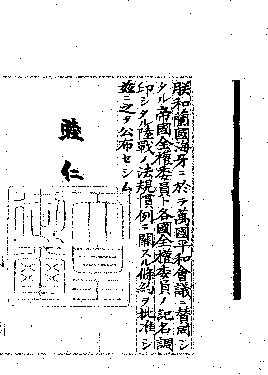 朕和蘭國海牙ニ於テ萬國平和會議ニ賛同シ
タル帝國全權委員ト各國全權委員ノ記名調
印シタル陸戰ノ法規慣例ニ關スル條約ヲ批准シ
茲ニ之ヲ公布セシム
睦仁